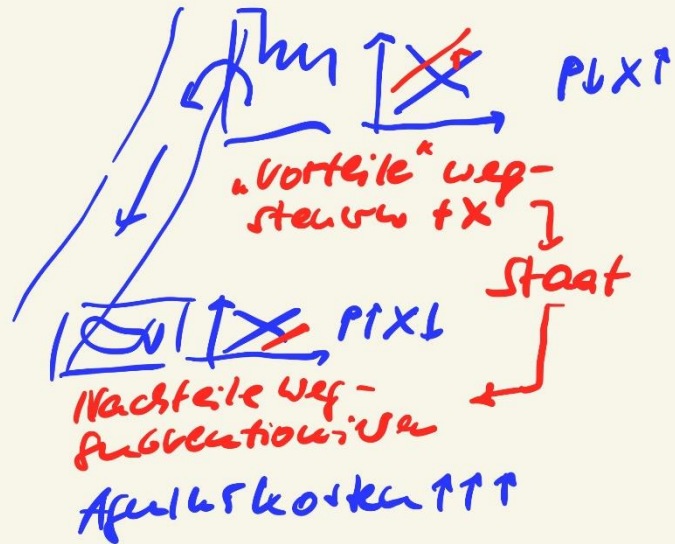 P↓ X↑
„Vorteile“ weg-
steuern tX
Staat
P↑ X↓
Nachteile weg-
subventionieren
Agenturkosten ↑↑↑